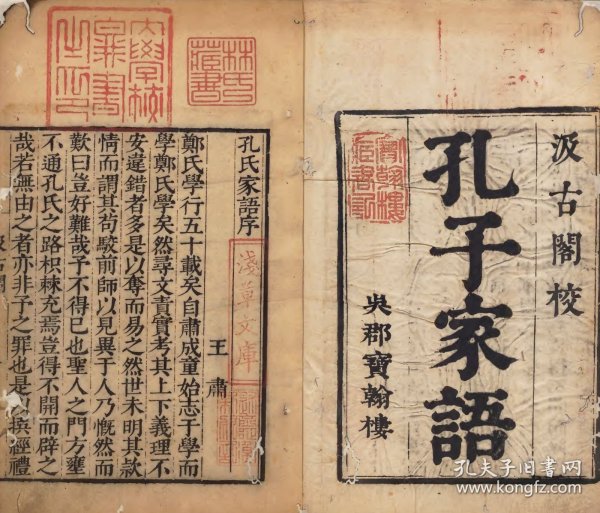 汲古閣校
孔子家語
吳郡寶翰樓
孔氏家語序
王肅
鄭氏學行五十載矣自肅成童始志于學而
學鄭氏學矣然尋文責實考其上下義理不
安違錯者多是以奪而易之然世未明其款
情而謂其苟駮前師以見異于人乃慨然而
歎曰豈好難哉予不得已也聖人之門方壅
不通孔氏之路枳棘充焉豈得不開而辟之
哉若無由之者亦非予之罪也是撰經禮
林氏藏書
淺草文庫
孔夫子旧书网
www.kongfz.com